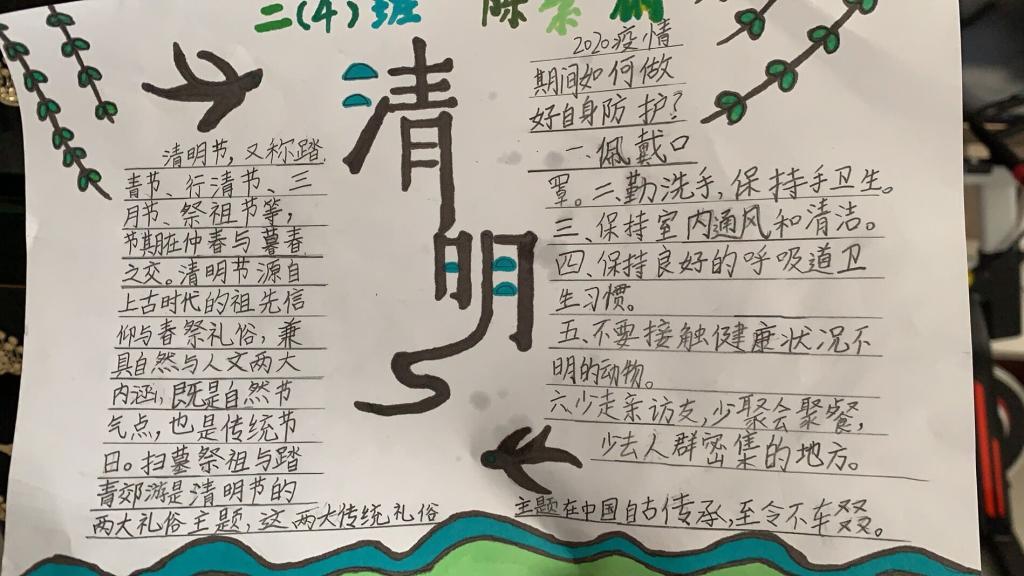 二(4)班 陈
清明
清明节，又称踏
青节、行清节、三
月节、祭祖节等，
节期在仲春与暮春
之交。清明节源自
上古时代的祖先信
仰与春祭礼俗，兼
具自然与人文两大
内涵，既是自然节
气点，也是传统节
日。扫墓祭祖与踏
青郊游是清明节的
两大礼俗主题，这两大传统礼俗
主题在中国自古传承，至今不车叕。
2020疫情
期间如何做
好自身防护？
一、佩戴口
罩。二、勤洗手，保持手卫生。
三、保持室内通风和清洁。
四、保持良好的呼吸道卫
生习惯。
五、不要接触健康状况不
明的动物。
六、少走亲访友，少聚会聚餐，
少去人群密集的地方。